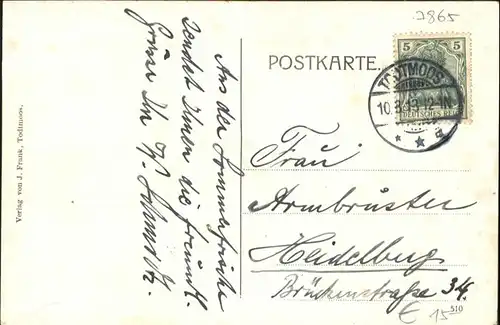 7865
Aus der Sommerfrische
sendet Ihnen die freundl.
Grüsse Ihr
POSTKARTE.
5 5
TODTMOOS
10.8.13.12-1N
DEUTSCHES REICH
Frau
Armbruster
Heidelberg
Brückenstraße 34.
510
€ 15
Verlag von J. Frank, Todtmoos.